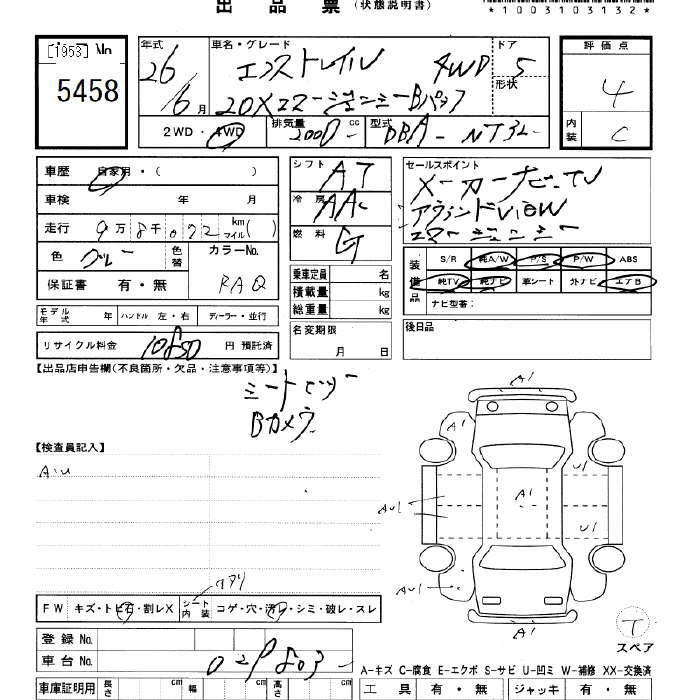 出品票(状態説明書)
*1003103132*
[1953] No
5458
年式 26 6月
車名・グレード エクストレイル 4WD
20XエマージェンシーBパック
ドア 5
形状
評価点 4
内装 C
2WD・4WD
排気量 2000 cc
型式 DBA-NT32-
車歴 自家用・( )
車検 年 月
走行 9万8千072 km マイル( )
色 グレー 色替
カラーNo. RAQ
保証書 有・無
シフト AT
冷房 AAC
燃料 G
乗車定員 名
積載量 kg
総重量 kg
セールスポイント
メーカーナビ・TV
アラウンドVIEW
エマージェンシー
装備品
S/R 純A/W P/S P/W ABS
純TV 純ナビ 革シート 外ナビ エアB
ナビ型番:
モデル年式 年 ハンドル 左・右 ディーラー・並行
名変期限 月 日
後日品
リサイクル料金 10850 円 預託済
【出品店申告欄(不良箇所・欠品・注意事項等)】
シートヒーター
Bカメラ
【検査員記入】
A・U
A1
A1
U1
AU1
A1
U1
AU1
A1
FW キズ・トビ石・割レX
シート内装 コゲ・穴・汚レ・シミ・破レ・スレ
T
スペア
登録No.
車台No. 029803
A-キズ C-腐食 E-エクボ S-サビ U-凹ミ W-補修 XX-交換済
車庫証明用 長さ cm 幅 cm 高さ cm
工具 有・無 ジャッキ 有・無